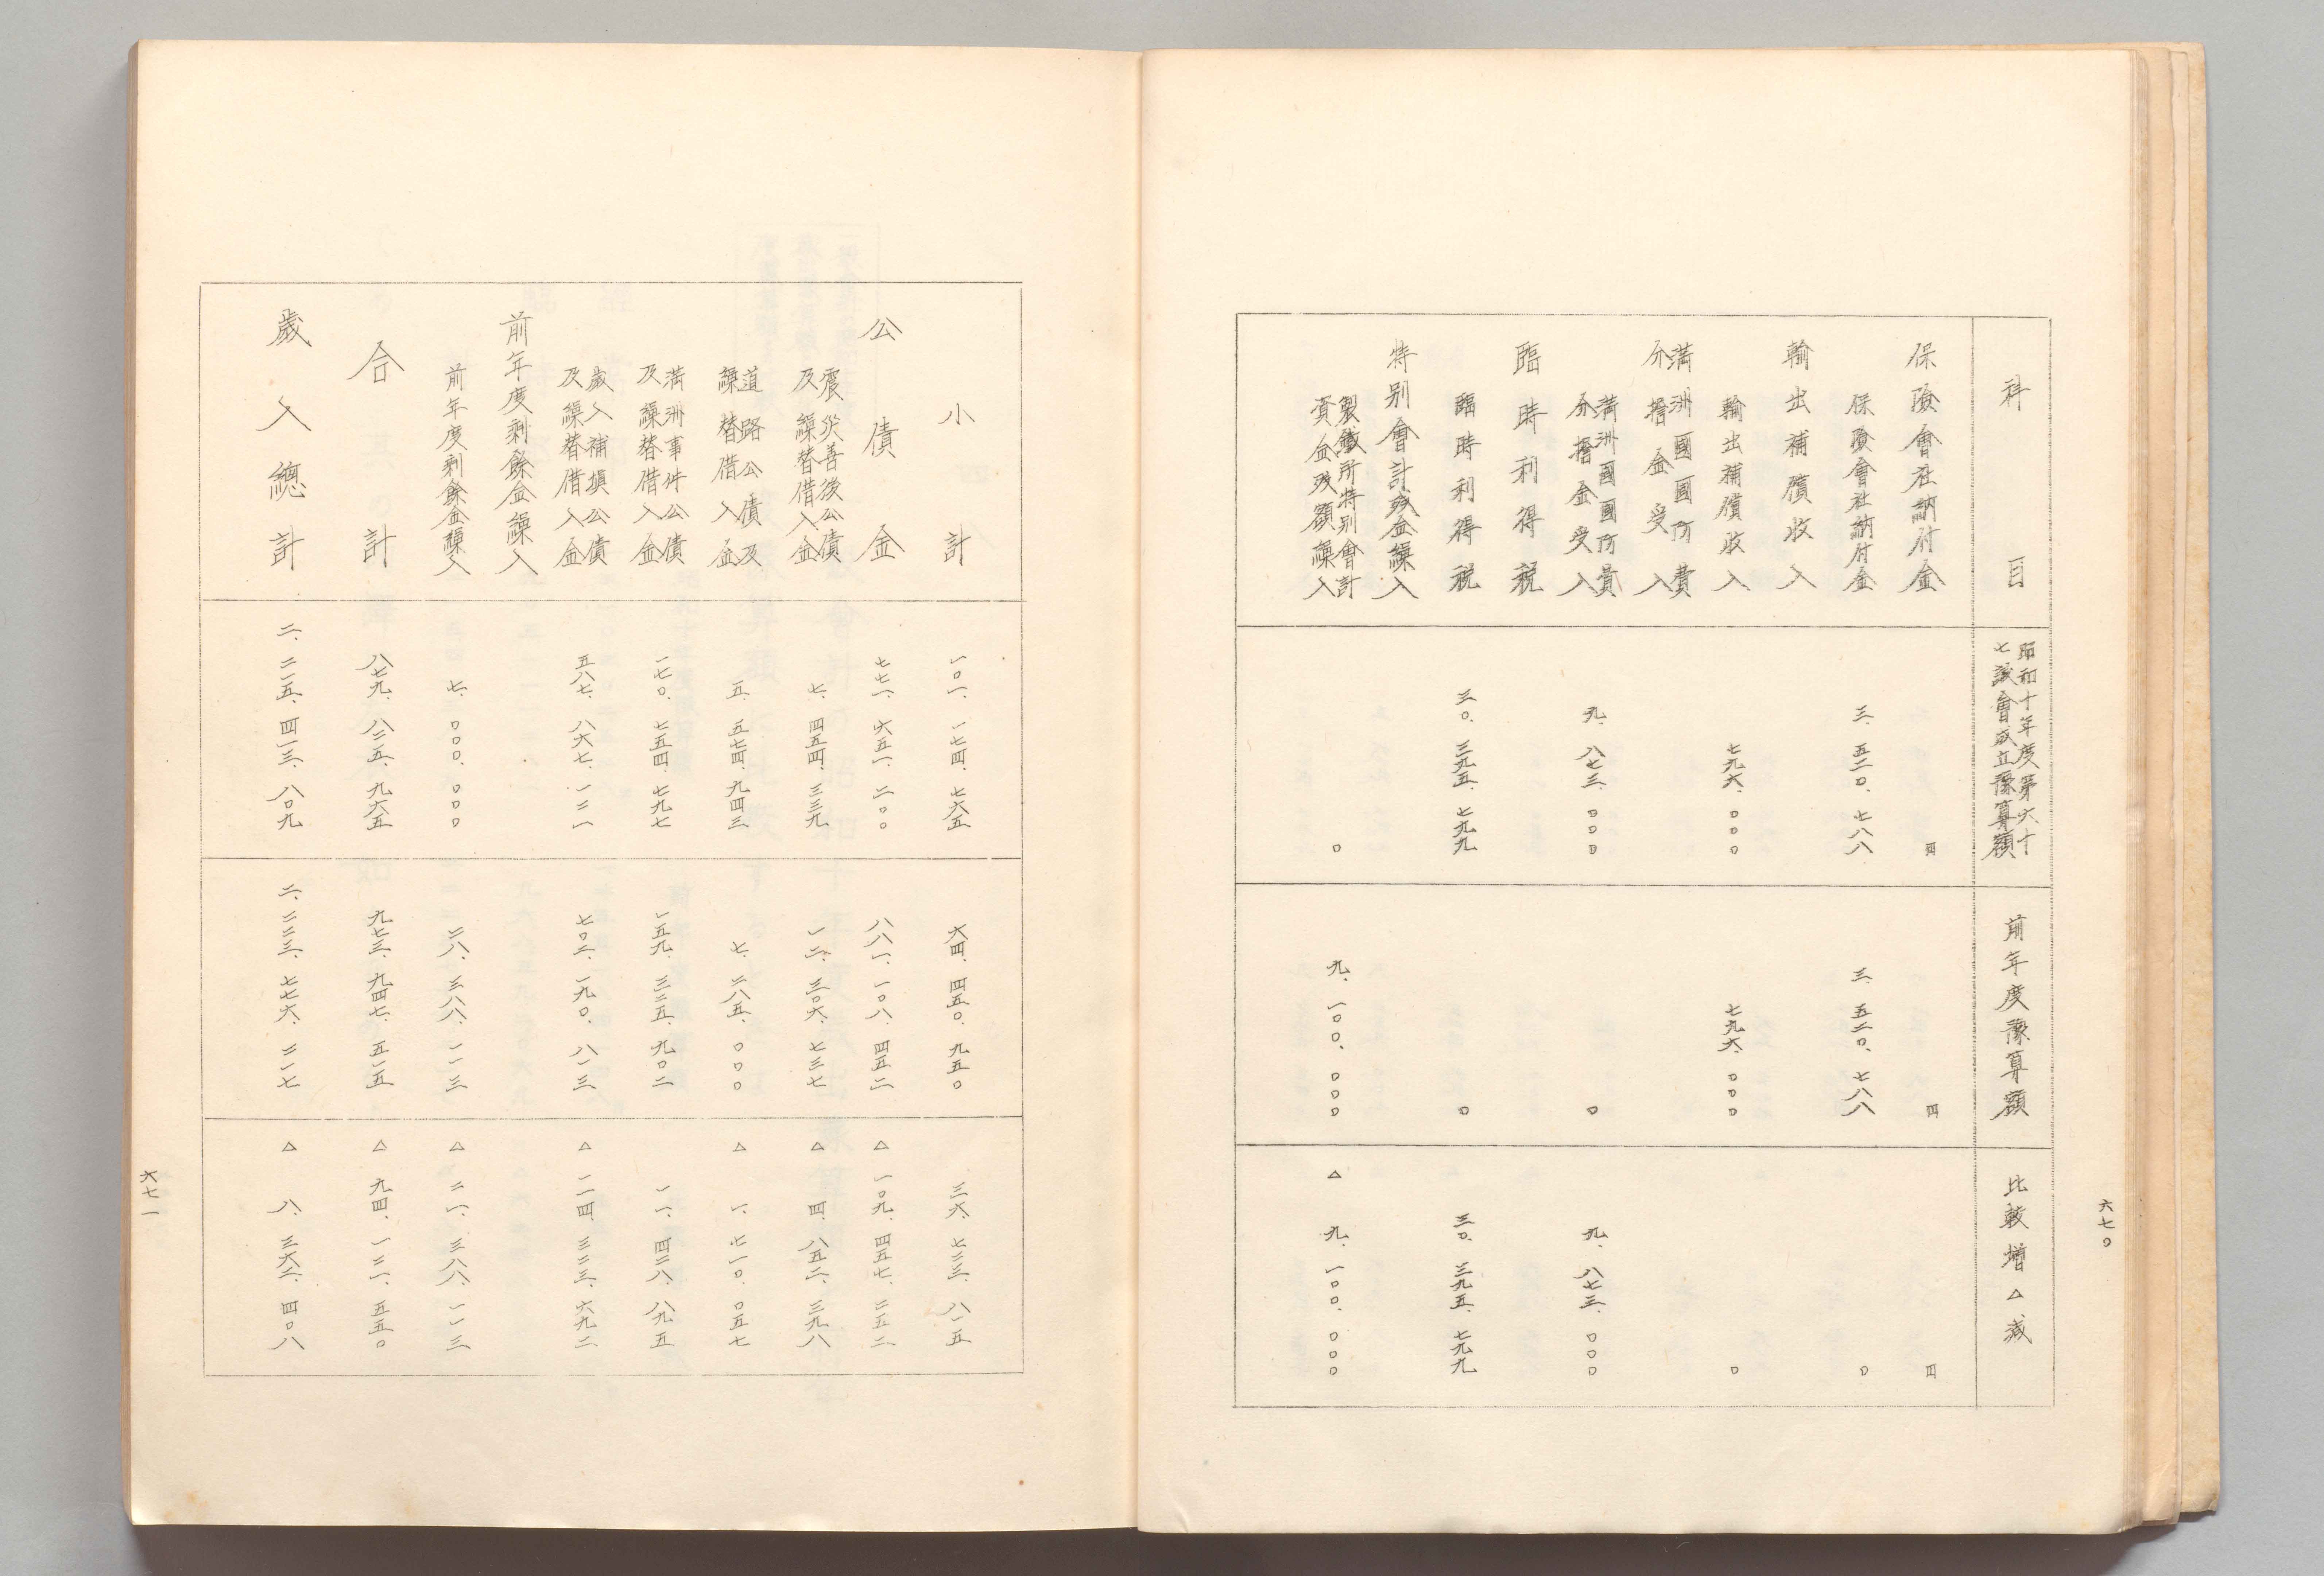 六七〇
科目
昭和十年度第六十
七議會成立豫算額
前年度豫算額
比較增△減
保險會社納付金
円
円
円
保險會社納付金
三、五二〇、七八八
三、五二〇、七八八
〇
輸出補償收入
輸出補償收入
七九六、〇〇〇
七九六、〇〇〇
〇
滿洲國國防費
分擔金受入
滿洲國國防費
分擔金受入
九、八七三、〇〇〇
〇
九、八七三、〇〇〇
臨時利得税
臨時利得税
三〇、三九五、七九九
〇
三〇、三九五、七九九
特别會計殘金繰入
製鐵所特别會計
資金殘額繰入
〇
九、一〇〇、〇〇〇
△九、一〇〇、〇〇〇
小計
一〇一、一七四、七六五
六四、四五〇、九五〇
三六、七二三、八一五
公債金
七七一、六五一、二〇〇
八八一、一〇八、四五二
△一〇九、四五七、二五二
震災善後公債
及繰替借入金
七、四五四、三三九
一二、三〇六、七三七
△四、八五二、三九八
道路公債及
繰替借入金
五、五七四、九四三
七、二八五、〇〇〇
△一、七一〇、〇五七
滿洲事件公債
及繰替借入金
一七〇、七五四、七九七
一五九、三二五、九〇二
一一、四二八、八九五
歲入補塡公債
及繰替借入金
五八七、八六七、一二一
七〇二、一九〇、八一三
△一一四、三二三、六九二
前年度剩餘金繰入
前年度剩餘金繰入
七、〇〇〇、〇〇〇
二八、三八八、一一三
△二一、三八八、一一三
合計
八七九、八二五、九六五
九七三、九四七、五一五
△九四、一二一、五五〇
歲入總計
二、二一五、四一三、八〇九
二、二二三、七七六、二一七
△八、三六二、四〇八
六七一